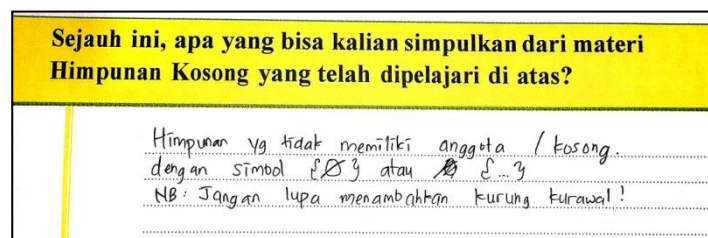 Sejauh ini, apa yang bisa kalian simpulkan dari materi
Himpunan Kosong yang telah dipelajari di atas?
Himpunan yg tidak memiliki anggota / kosong.
dengan simbol {Ø} atau {...}
NB: Jangan lupa menambahkan kurung kurawal!